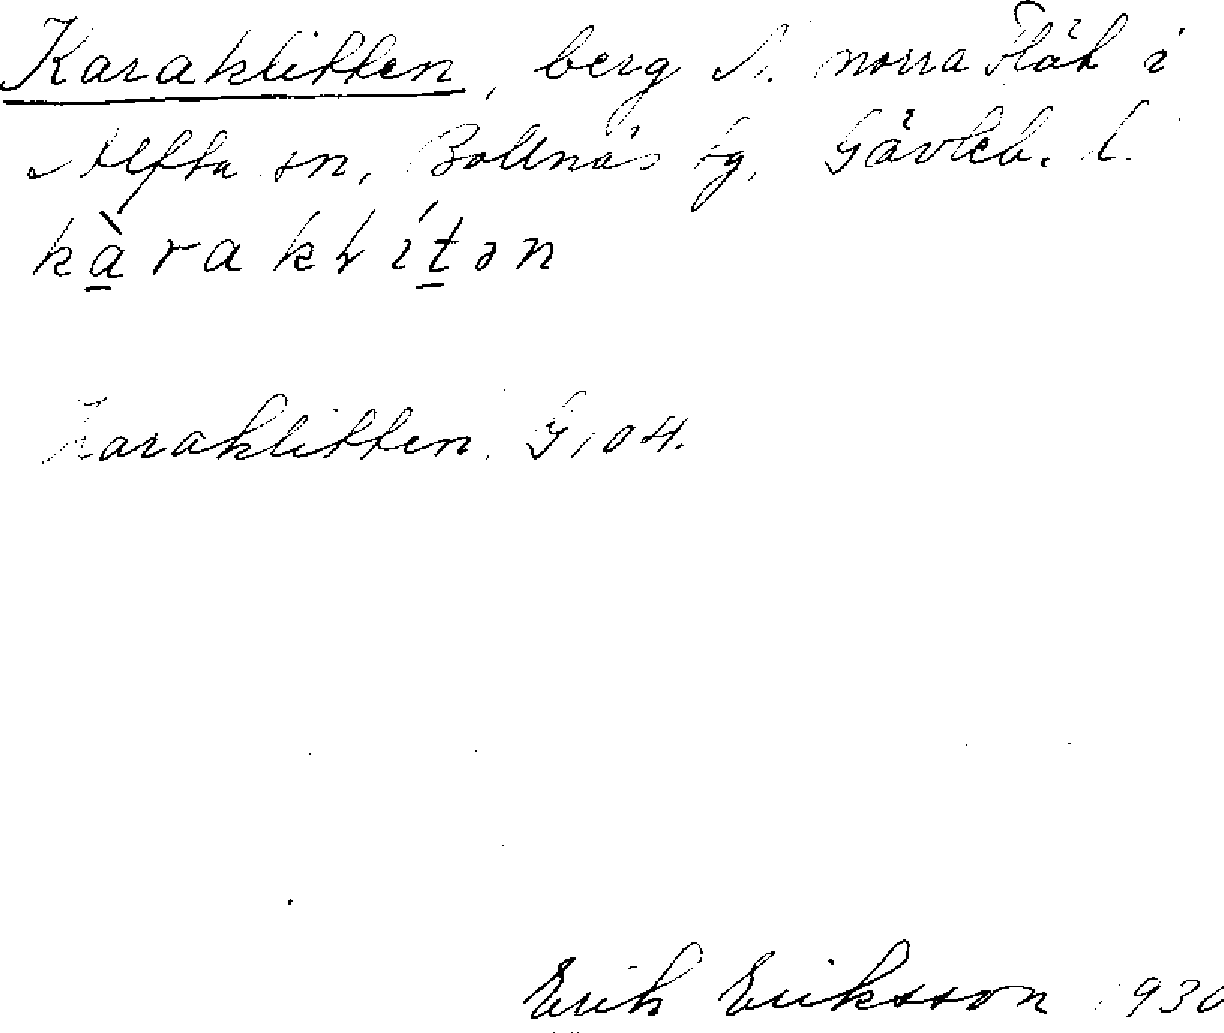 Karaklitten, berg N. norra Flät i
Alfta sn, Bollnäs tg, Gävleb. l.
kàraklítən
Karaklitten. G 104.
Erik Eriksson 1930